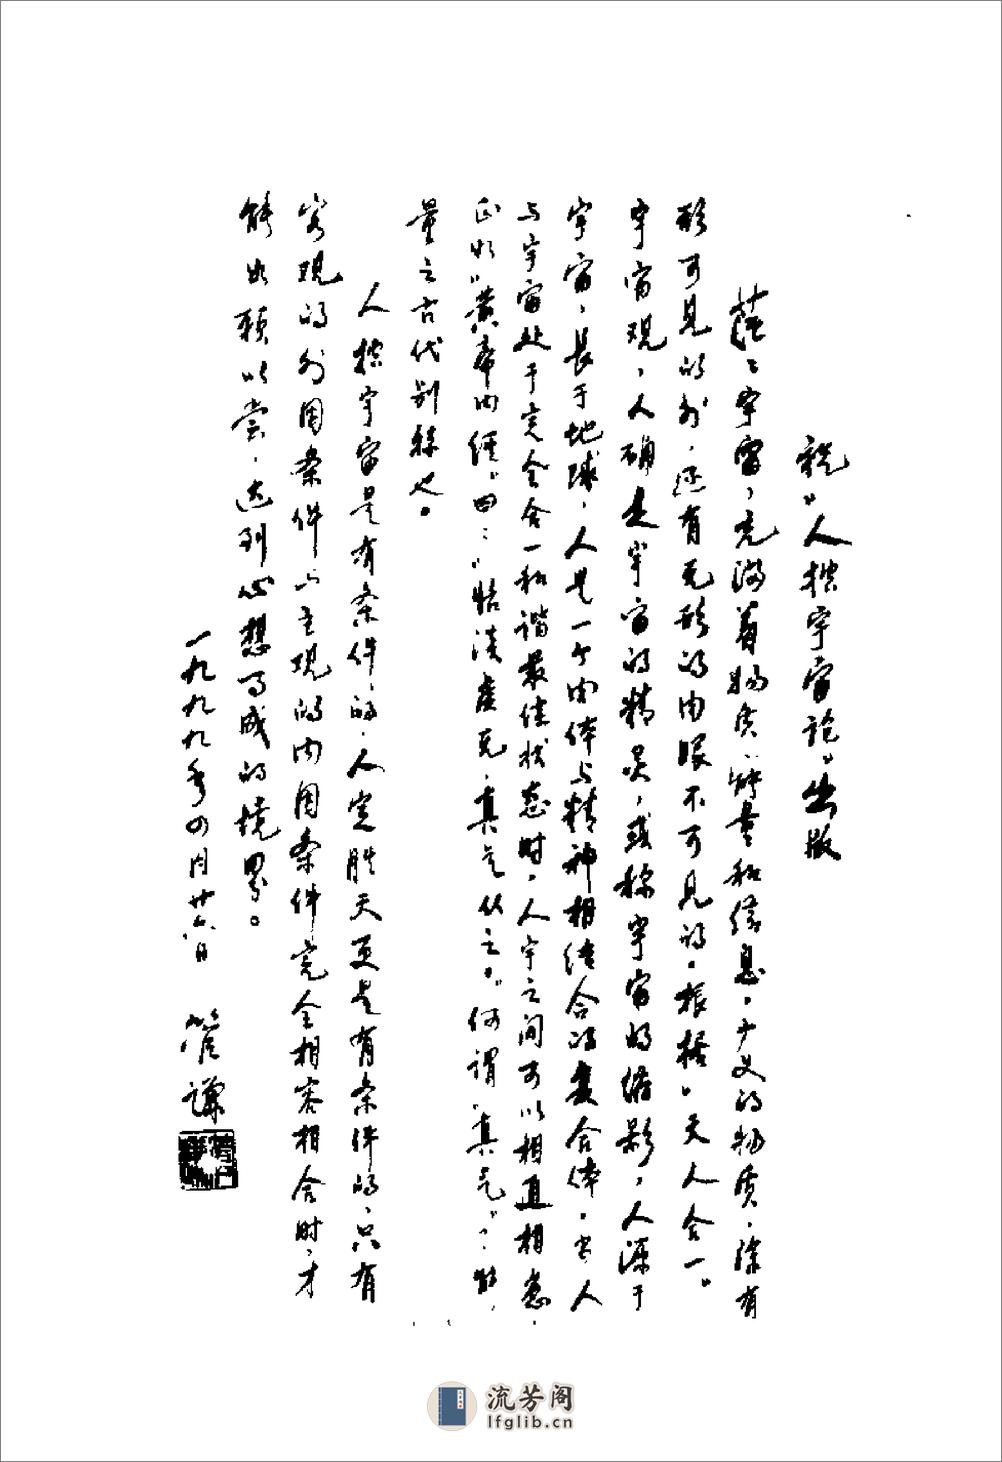 祝"人控宇宙论"出版
茫茫宇宙,充满着物质、能量和信息。广义的物质,除有
形可见的外,还有无形的肉眼不可见的。根据"天人合一"
宇宙观,人确是宇宙的精灵,或称宇宙的缩影,人源于
宇宙,长于地球,人是一个肉体与精神相结合的复合体。当人
与宇宙处于完全合一和谐最佳状态时,人宇之间可以相通相感,
正如"黄帝内经"曰:"恬淡虚无,真气从之。"何谓"真气"?能
量之古代别称也。
人控宇宙是有条件的,人定胜天更是有条件的,只有
客观的外因条件与主观的内因条件完全相容相合时,才
能如愿以尝,达到心想事成的境界。
一九九九年四月廿六日 管谦
流芳阁
lfglib.cn